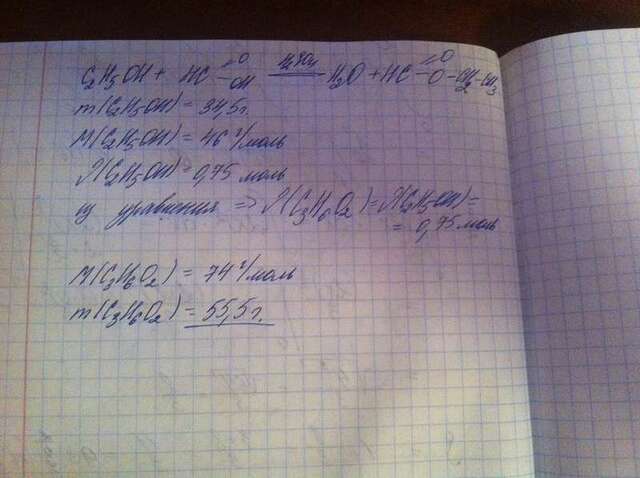 C₂H₅OH + HC =O -OH H₂SO₄ H₂O + HC =O -O-CH₂-CH₃
m(C₂H₅OH) = 34,5г.
M(C₂H₅OH) = 46 г/моль
λ(C₂H₅OH) = 0,75 моль
из уравнения => λ(C₃H₆O₂) = λ(C₂H₅OH) =
= 0,75 моль
M(C₃H₆O₂) = 74 г/моль
m(C₃H₆O₂) = 55,5г.